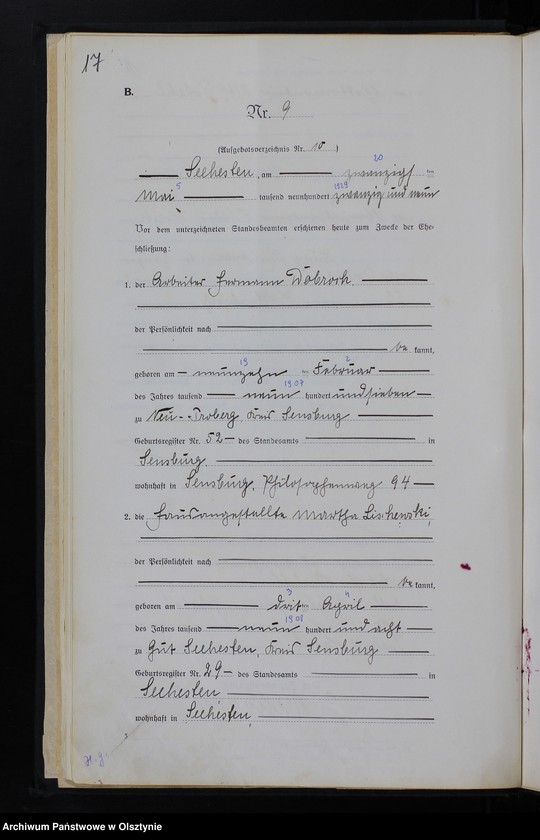 17
B.
Nr. 9
(Aufgebotsverzeichnis Nr. 10)
20
Seehesten, am zwanzigsten
5 1929
Mai tausend neunhundert zwanzig und neun
Vor dem unterzeichneten Standesbeamten erschienen heute zum Zwecke der Ehe-
schließung:
1. der Arbeiter Hermann Dobroch
der Persönlichkeit nach
be kannt,
19 2
geboren am neunzehnten Februar
1907
des Jahres tausend neun hundert und sieben
zu Kreis Sensburg
Geburtsregister Nr. 52 des Standesamts in
Sensburg,
wohnhaft in Sensburg, Philosophenweg 94
2. die Hausangestellte Martha Lischewski,
der Persönlichkeit nach
be kannt,
3 4
geboren am dritten April
1908
des Jahres tausend neun hundert und acht
zu Gut Seehesten, Kreis Sensburg
Geburtsregister Nr. 29 des Standesamts in
Seehesten
wohnhaft in Seehesten,
Archiwum Państwowe w Olsztynie